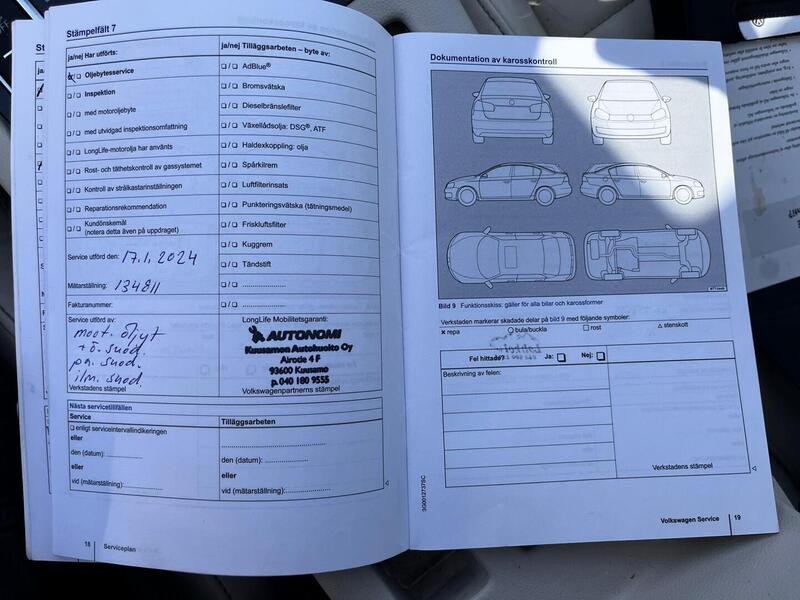 Stämpelfält 7
ja/nej Har utförts:
❑ / ❑ Oljebytesservice
❑ / ❑ Inspektion
❑ / ❑ med motoroljebyte
❑ / ❑ med utvidgad inspektionsomfattning
❑ / ❑ LongLife-motorolja har använts
❑ / ❑ Rost- och täthetskontroll av gassystemet
❑ / ❑ Kontroll av strålkastarinställningen
❑ / ❑ Reparationsrekommendation
❑ / ❑ Kundönskemål
(notera detta även på uppdraget)
Service utförd den: 17.1.2024
Mätarställning: 134811
Fakturanummer:
Service utförd av:
moot. öljyt
+ö. suod.
pa. suod.
ilm. suod.
Verkstadens stämpel
ja/nej Tilläggsarbeten – byte av:
❑ / ❑ AdBlue®
❑ / ❑ Bromsvätska
❑ / ❑ Dieselbränslefilter
❑ / ❑ Växellådsolja: DSG®, ATF
❑ / ❑ Haldexkoppling: olja
❑ / ❑ Spårkilrem
❑ / ❑ Luftfilterinsats
❑ / ❑ Punkteringsvätska (tätningsmedel)
❑ / ❑ Friskluftsfilter
❑ / ❑ Kuggrem
❑ / ❑ Tändstift
❑ / ❑ ........................
❑ / ❑ ........................
LongLife Mobilitetsgaranti:
AUTONOMI
Kuusamon Autohuolto Oy
Airotie 4 F
93600 Kuusamo
p.040 180 9555
Volkswagenpartnerns stämpel
Nästa servicetillfällen
Service
❑ enligt serviceintervallindikeringen
eller
den (datum): ....................
eller
vid (mätarställning):....................
Tilläggsarbeten
........................................
den (datum): ....................
eller
vid (mätarställning):....................
18 Serviceplan
Dokumentation av karosskontroll
Bild 9 Funktionsskiss: gäller för alla bilar och karossformer
Verkstaden markerar skadade delar på bild 9 med följande symboler:
× repa ○ bula/buckla □ rost △ stenskott
Fel hittades? Ja: ❑ Nej: ❑
Beskrivning av felen:
Verkstadens stämpel
3G0012737SC
Volkswagen Service 19